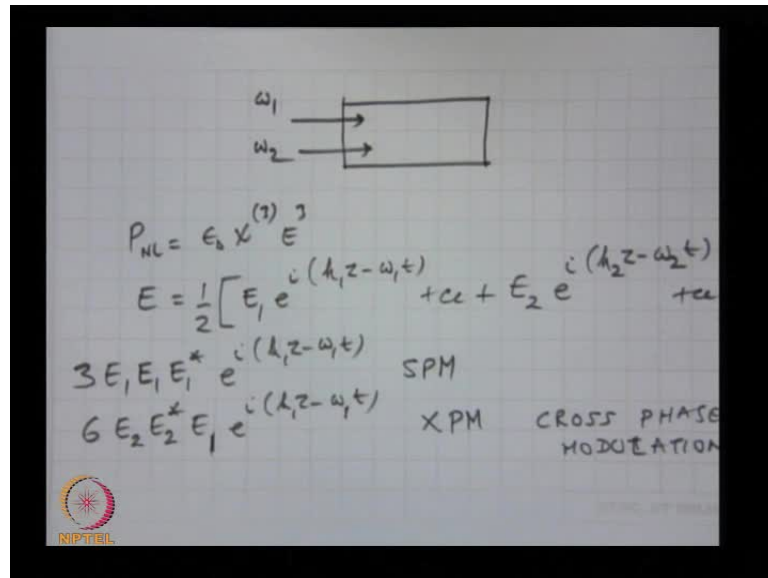 ω₁
ω₂
P_NL = ε₀ χ^(3) E^3
E = 1/2 [ E₁ e^{i(k₁z-ω₁t)} + cc + E₂ e^{i(k₂z-ω₂t)} + cc
3 E₁ E₁ E₁* e^{i(k₁z-ω₁t)} SPM
6 E₂ E₂* E₁ e^{i(k₁z-ω₁t)} XPM CROSS PHASE
MODULATION
NPTEL